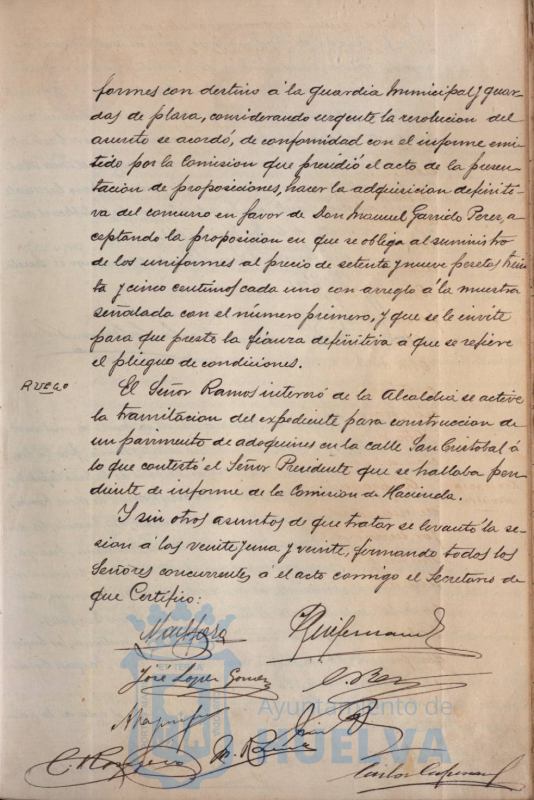 formes con destino á la guardia municipal y guar-
das de plaza, considerando urgente la resolucion del
asunto se acordó, de conformidad con el informe emi-
tido por la Comision que presidió el acto de la presen-
tacion de proposiciones, hacer la adquisicion definiti-
va del concurso en favor de Don Manuel Garrido Perez, a
ceptando la proposicion en que se obliga al suministro
de los uniformes al precio de setenta y nueve pesetas trein
ta y cinco centimos cada uno con arreglo á la muestra
señalada con el número primero, y que se le invite
para que preste la fianza definitiva á que se refiere
el pliego de condiciones.
RUEGO
El Señor Ramos interesó de la Alcaldia se active
la tramitacion del expediente para construccion de
un pavimento de adoquines en la calle San Cristobal á
lo que contestó el Señor Presidente que se hallaba pen
diente de informe de la Comision de Hacienda.
Y sin otros asuntos de que tratar se levantó la se-
sion á las veinte y una y veinte, firmando todos los
Señores concurrentes á el acto conmigo el Secretario de
que Certifico:
José Lopez Gomez
Ayuntamiento de
HUELVA